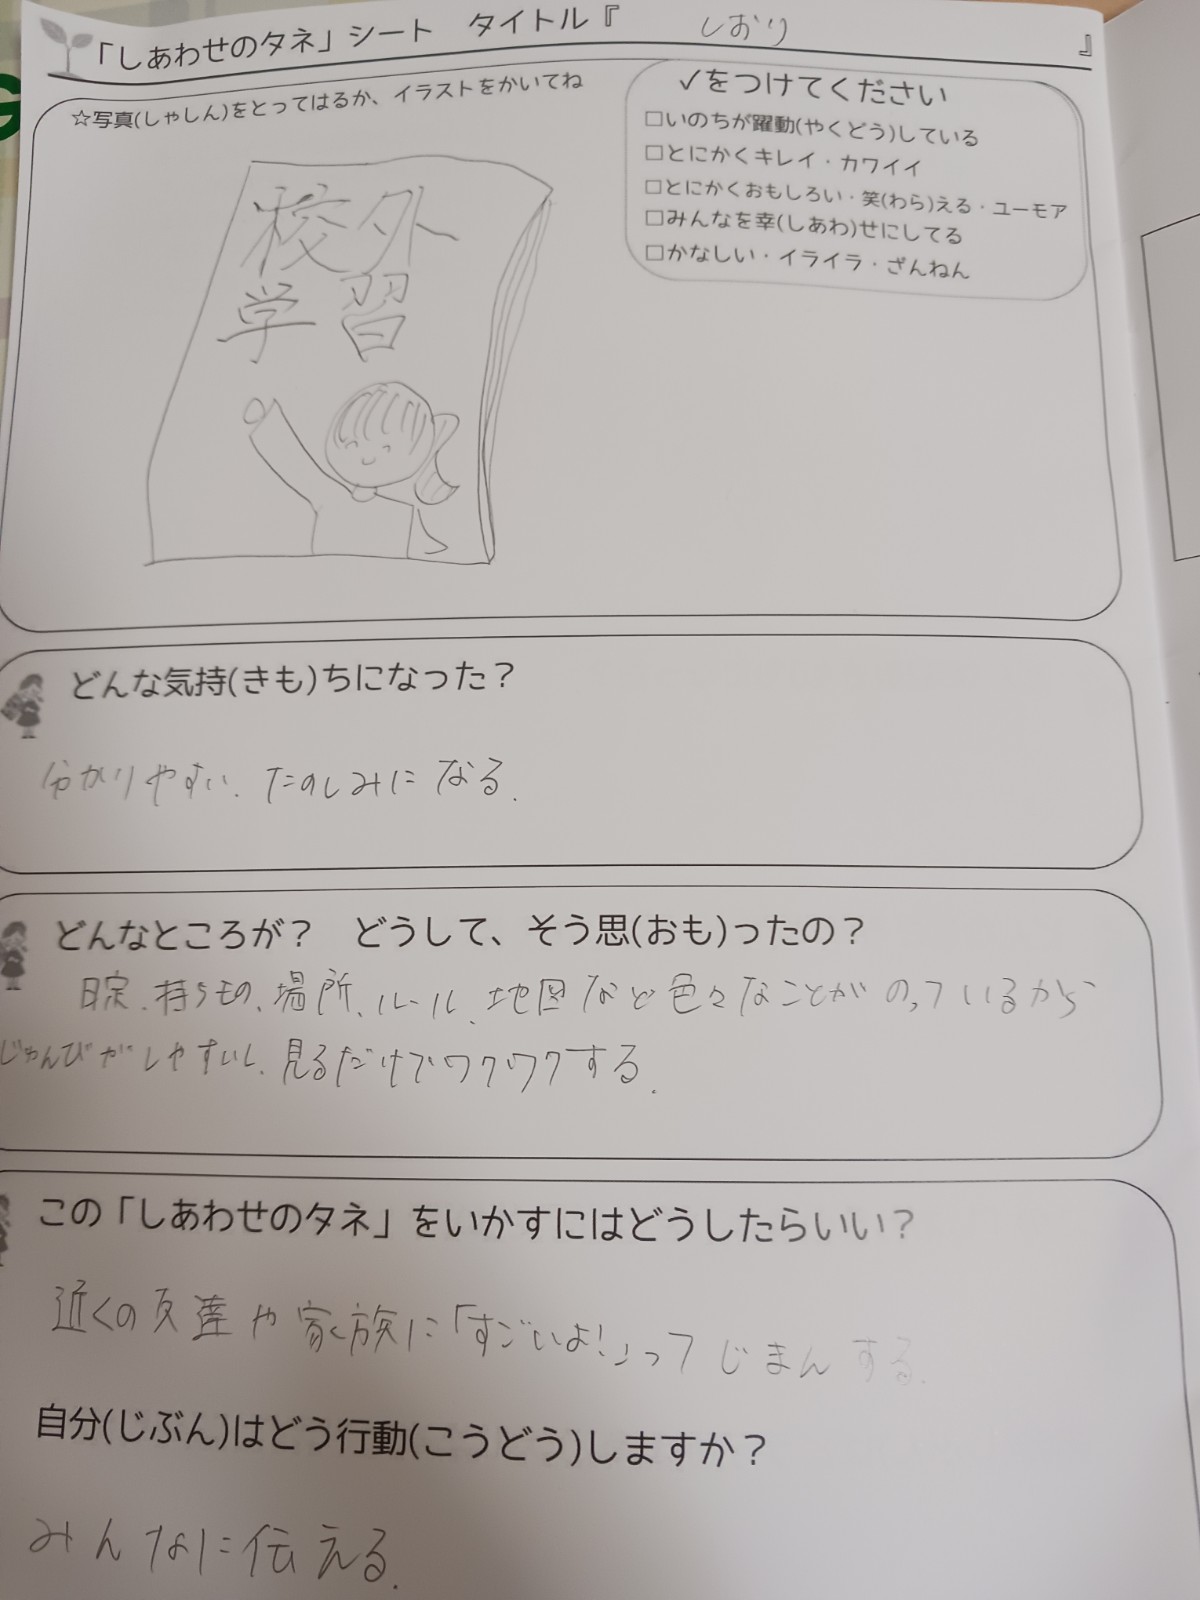 「しあわせのタネ」シート　タイトル『　しおり　』
☆写真(しゃしん)をとってはるか、イラストをかいてね
✓をつけてください
□いのちが躍動(やくどう)している
□とにかくキレイ・カワイイ
□とにかくおもしろい・笑(わら)える・ユーモア
□みんなを幸(しあわ)せにしてる
□かなしい・イライラ・ざんねん
校外
学習
どんな気持(きも)ちになった？
分かりやすい、たのしみになる。
どんなところが？　どうして、そう思(おも)ったの？
日定、持ちもの、場所、ルール、地図など色々なことがのっているから
じゅんびがしやすいし、見るだけでワクワクする。
この「しあわせのタネ」をいかすにはどうしたらいい？
近くの友達や家族に「すごいよ!」ってじまんする。
自分(じぶん)はどう行動(こうどう)しますか？
みんなに伝える。